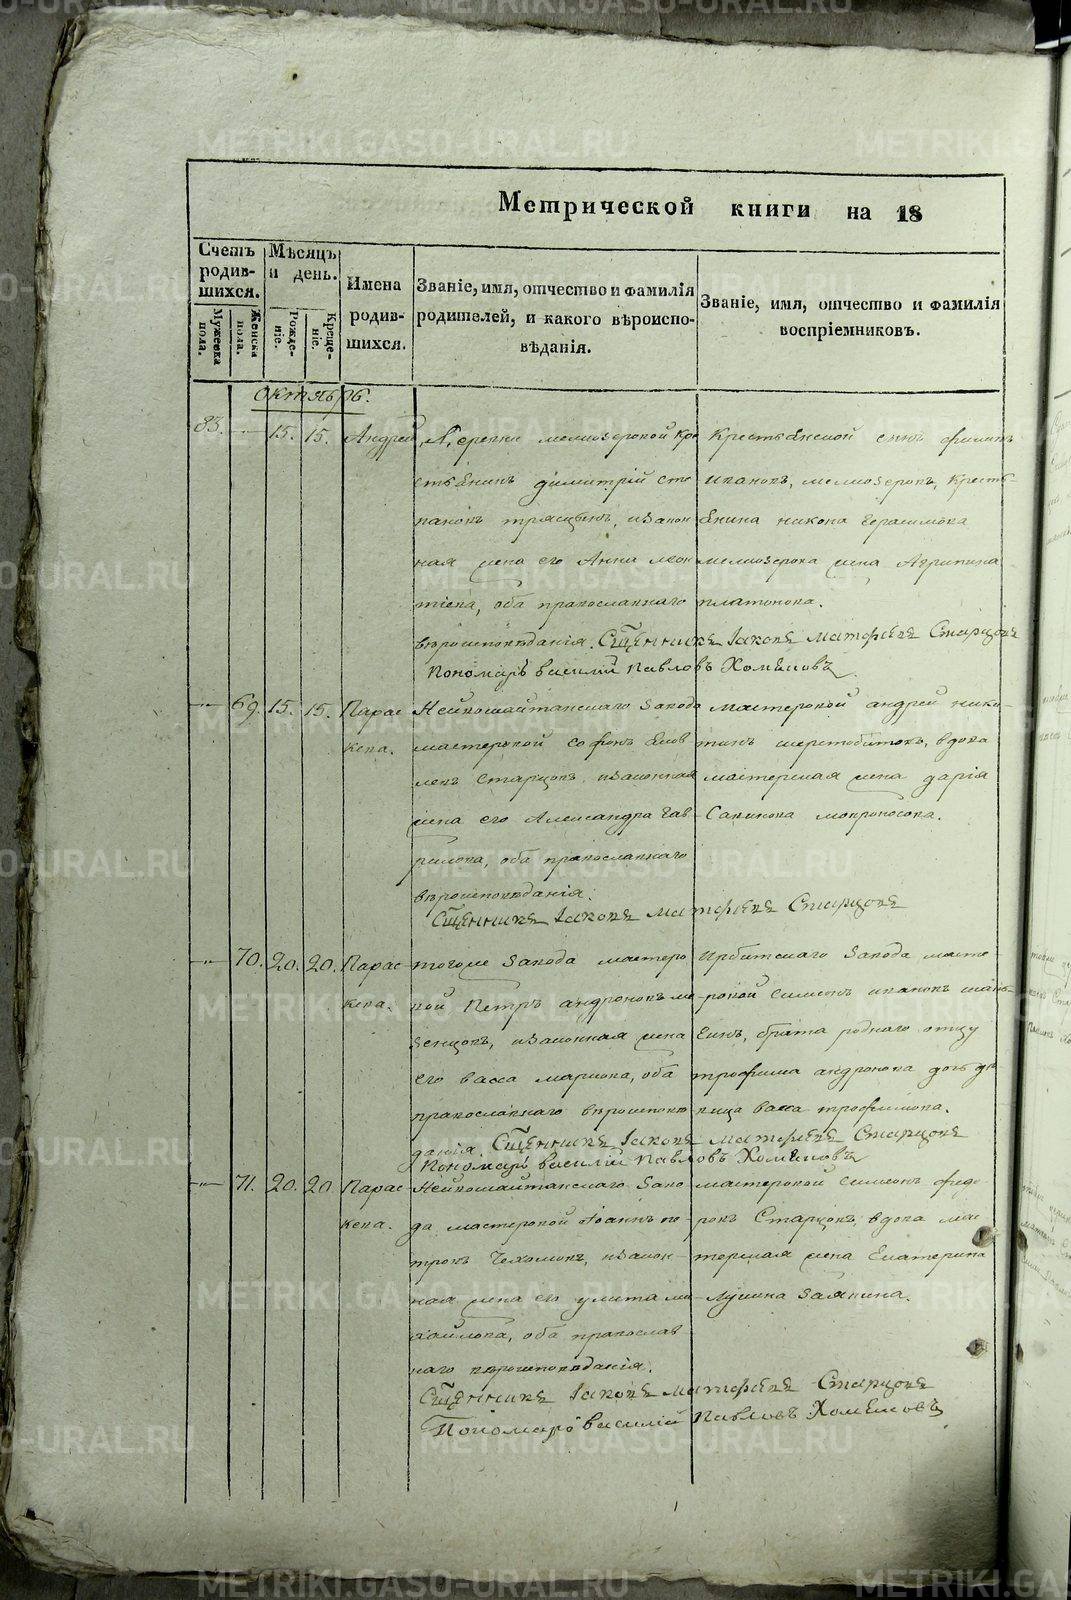 Метрической книги на 18
Счетъ родив-шихся.
Мѣсяцъ и день.
Имена родив-шихся.
Званіе, имя, отчество и фамилія родителей, и какого вѣроиспо-вѣданія.
Званіе, имя, отчество и фамилія воспріемниковъ.
Мужеска пола.
Женска пола.
Рожде-ніе.
Креще-ніе.
Октябрь.
83. 15. 15. Андрей
мелкозеровой кре
стьянинъ Димитрій Сте
пановъ, и закон
ная жена его Анна Леон
тіева, оба православнаго
вѣроисповѣданія. Священникъ Іаковъ Матфѣевъ Старцовъ
Пономарь Василій Павловъ Хомяковъ
Крестьянской сынъ Филипъ
Ивановъ, Мелкозеровъ, кресть-
янина Никона Герасимова
Мелкозерова жена Агрипина
Платонова.
69. 15. 15. Парас
кева.
Нейвошайтанскаго завода
мастеровой Софонъ Яков
левъ Старцовъ, и законная
жена его Александра Гав
рилова, оба православнаго
вѣроисповѣданія.
Священникъ Іаковъ Матфѣевъ Старцовъ
Мастеровой Андрей Ники-
тинъ Шерстобитовъ, вдова
мастерская жена Дарія
Савинова Мокроносова.
70. 20. 20. Парас
кева.
тогоже завода мастеро
вой Петръ Андроновъ Ме
зенцовъ, и законная жена
его Васса Маркова, оба
православнаго вѣроиспове
данія. Священникъ Іаковъ Матфѣевъ Старцовъ
Пономарь Василій Павловъ Хомяковъ
Ирбитскаго завода масте-
ровой Симеонъ Ивановъ Шань-
гинъ, брата роднаго отцу
Трофима Андронова дочь дѣ
вица Васса Трофимова.
71. 20. 20 Парас
кева.
Нейвошайтанскаго заво
да мастеровой Іоаннъ Пе
тровъ, и закон-
ная жена его Улита Ми
хайлова, оба православ
наго вѣроисповѣданія.
Священникъ Іаковъ Матфѣевъ Старцовъ
Пономарь Василій Павловъ Хомяковъ
Мастеровой Симеонъ Федо-
ровъ Старцовъ, вдова мас-
терская жена Екатерина
Лукина Заякина.
METRIKI.GASO-URAL.RU